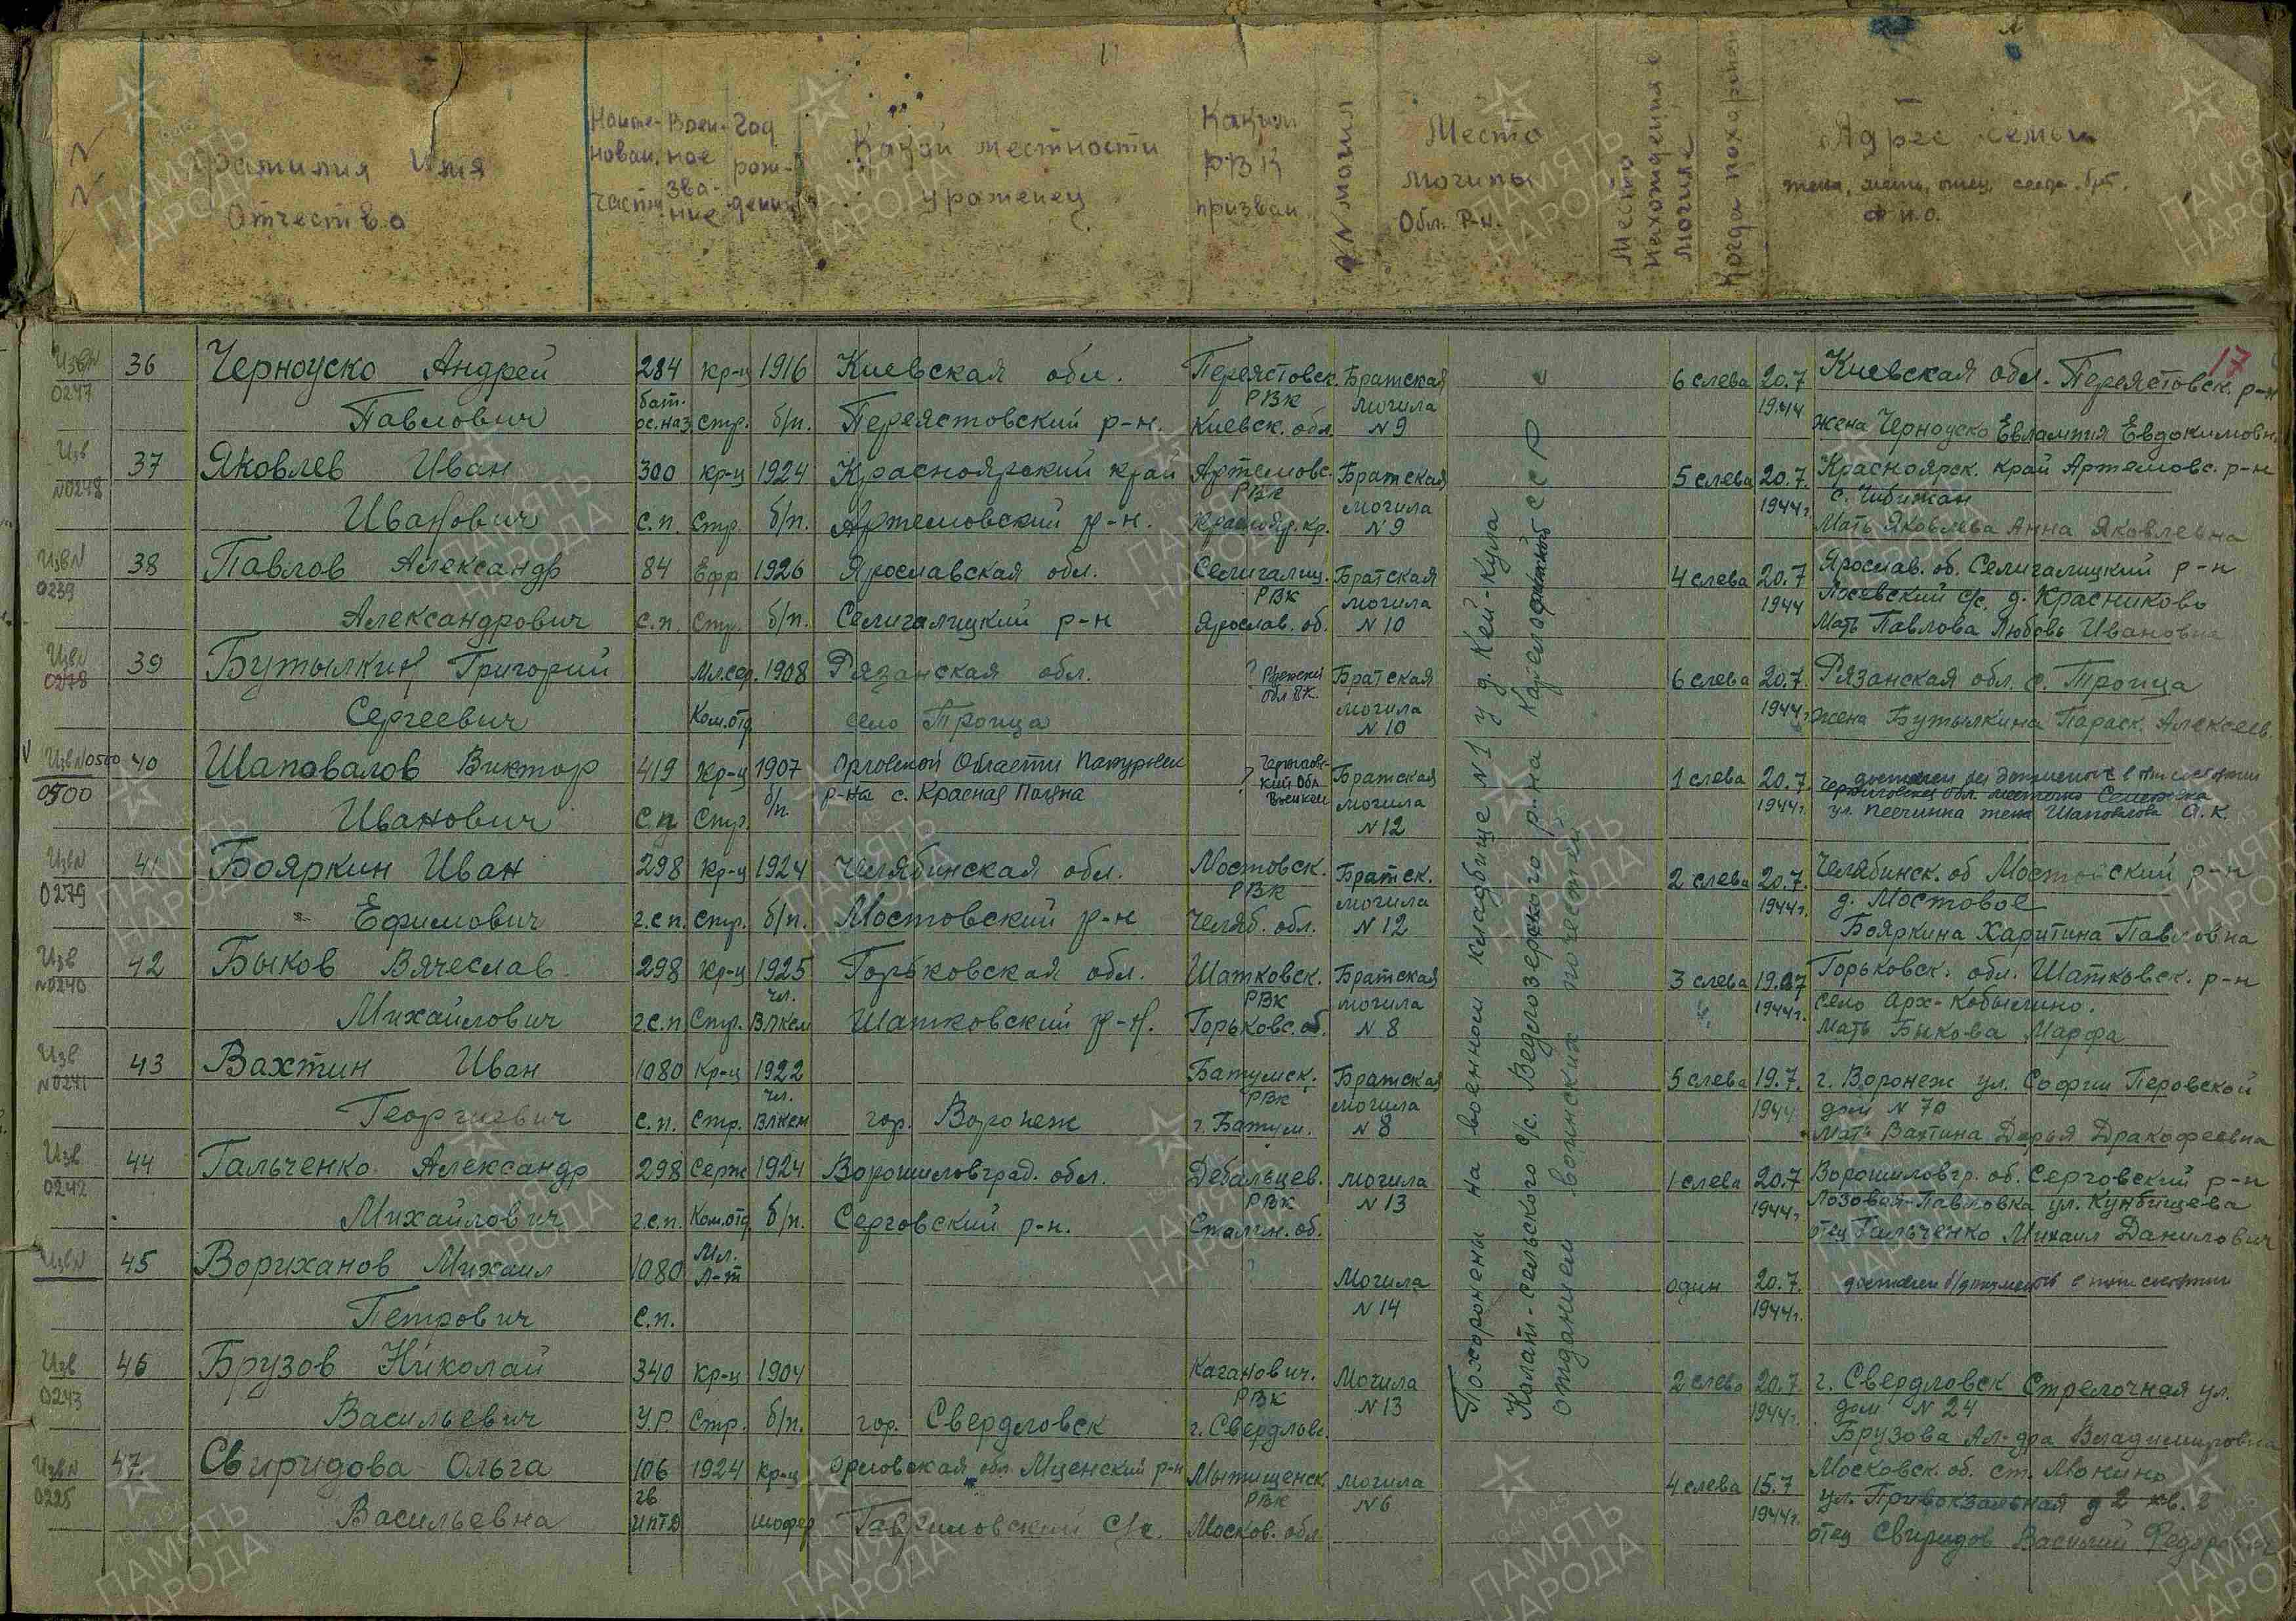 N N
Фамилия Имя
Отчество
Наиме-
нован.
части
Воен-
ное
зва-
ние
Год
рож-
дения
Какой местности
уроженец
Каким
РВК
призван
NN могил
Место
могилы
Обл. Р-н.
Место
нахождения в
могиле
Когда похоронен
Адрес семьи
жена, мать, отец, сестр. брт.
ф.и.о.
17
ИзвN 0247
36 Черноуско Андрей 284 кр-ц 1916 Киевская обл. Переястовск. Братская 6 слева 20.7 Киевская обл. Переястовск. р-н
бат. РВК могила 1944
Павлович ос.наз. стр. б/п. Переястовский р-н. Киевск. обл. N 9 жена Черноуско Евлампия Евдокимовн.
Изв N0248
37 Яковлев Иван 300 кр-ц 1924 Красноярский край Артемовс. Братская 5 слева 20.7. Красноярск. край Артемовс. р-н
РВК могила 1944г. с. Чибижан
Иванович с.п. Стр. б/п. Артемовский р-н. Краснояр. кр. N 9 Мать Яковлева Анна Яковлевна
ИзвN 0239
38 Павлов Александр 84 Ефр 1926 Ярославская обл. Селигалиц. Братская 4 слева 20.7 Ярослав. об. Селигалицкий р-н
РВК могила 1944 Лосевский с/с, д. Красниково
Александрович с.п. Стр. б/п. Селигалицкий р-н Ярослав. об. N 10 Мать Павлова Любовь Ивановна
ИзвN 0278
39 Бутылкин Григорий Мл.сер. 1908 Рязанская обл. ? Братская 6 слева 20.7. Рязанская обл. с. Троица
обл ВК. могила 1944г.
Сергеевич Ком.отд село Троица N 10 жена Бутылкина Параск. Алексеев.
√ ИзвN0500 0500
40 Шаповалов Виктор 419 Кр-ц 1907 Орловской Области ? Братская 1 слева 20.7.
б/п р-на с. Красная кий Обл могила 1944г. Черниговской обл. местечко
Иванович с.п Стр. N 12 ул. жена Шаповалова А.К.
ИзвN 0279
41 Бояркин Иван 298 кр-ц 1924 Челябинская обл. Мостовск. Братск. 2 слева 20.7. Челябинск. об Мостовский р-н
РВК могила 1944г. д. Мостовое
Ефимович г.с.п. стр. б/п. Мостовский р-н Челяб. обл. N 12 Бояркина Харитина Павловна
Изв N0240
42 Быков Вячеслав 298 кр-ц 1925 Горьковская обл. Шатковск. Братская 3 слева 19.07 Горьковск. обл. Шатковск. р-н
чл. РВК могила 1944г. село Арх-Кобылино.
Михайлович г.с.п Стр. ВЛКСМ Шатковский р-н. Горьковс. об. N 8 мать Быкова Марфа
Изв N0241
43 Вахтин Иван 1080 Кр-ц 1922 Батумск. Братская 5 слева 19.7. г. Воронеж ул. Софии Перовской
чл. РВК могила 1944 дом N 70
Георгиевич с.п. Стр. ВЛКСМ гор. Воронеж г. Батум. N 8 Мать Вахтина Дарья Дракофеевна
Изв 0242
44 Гальченко Александр 298 Серж 1924 Ворошиловград. обл. Дебальцев. могила 1 слева 20.7 Ворошиловгр. об. Серговский р-н
РВК N 13 1944г. Лозовая-Павловка ул. Куйбищева
Михайлович г.с.п. Ком.отд б/п. Серговский р-н. Сталин. об. отец Гальченко Михаил Данилович
ИзвN
45 Вориханов Михаил 1080 Мл. Л-т ? Могила один 20.7. доставлен б/документов
N 14 1944г.
Петрович с.п.
Изв 0243
46 Брузов Николай 340 кр-ц 1904 Каганович. Могила 2 слева 20.7. г. Свердловск Стрелочная ул.
РВК N 13 1944г. дом N 24
Васильевич У.Р. Стр. б/п. гор. Свердловск г. Свердловс. Брузова Ал-дра Владимировна
ИзвN 0225
47. Свиридова Ольга 106 1924 кр-ц Орловская обл. Мценский р-н Мытищенск. могила 4 слева 15.7 Московск. об. ст. Монино
гв РВК N 6 1944г. ул. Привокзальная д 2 кв. 2
Васильевна ИПТД шофер Гавриловский С/с. Москов. обл. отец Свиридов Василий Федорович
Похоронены на военном кладбище N 1 у д. Кей-Кула
Колат-сельского с/с. Ведлозерского р-на Карелофинской ССР
с отданием воинских почестей
ПАМЯТЬ НАРОДА